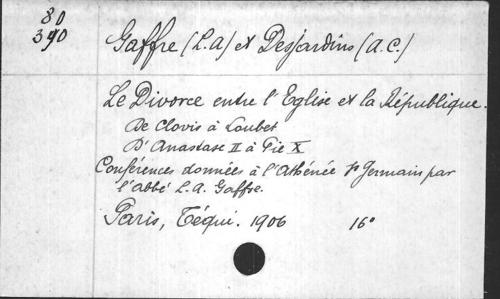 80
390
Gaffre (L.A) et Desjardins (A.C.)
Le Divorce entre l'Eglise et la République.
De Clovis à Loubet
D'Anastase II à Pie X
Conférences données à l'Athénée St Germain par
l'abbé L.A. Gaffre.
Paris, Téqui. 1906 16°